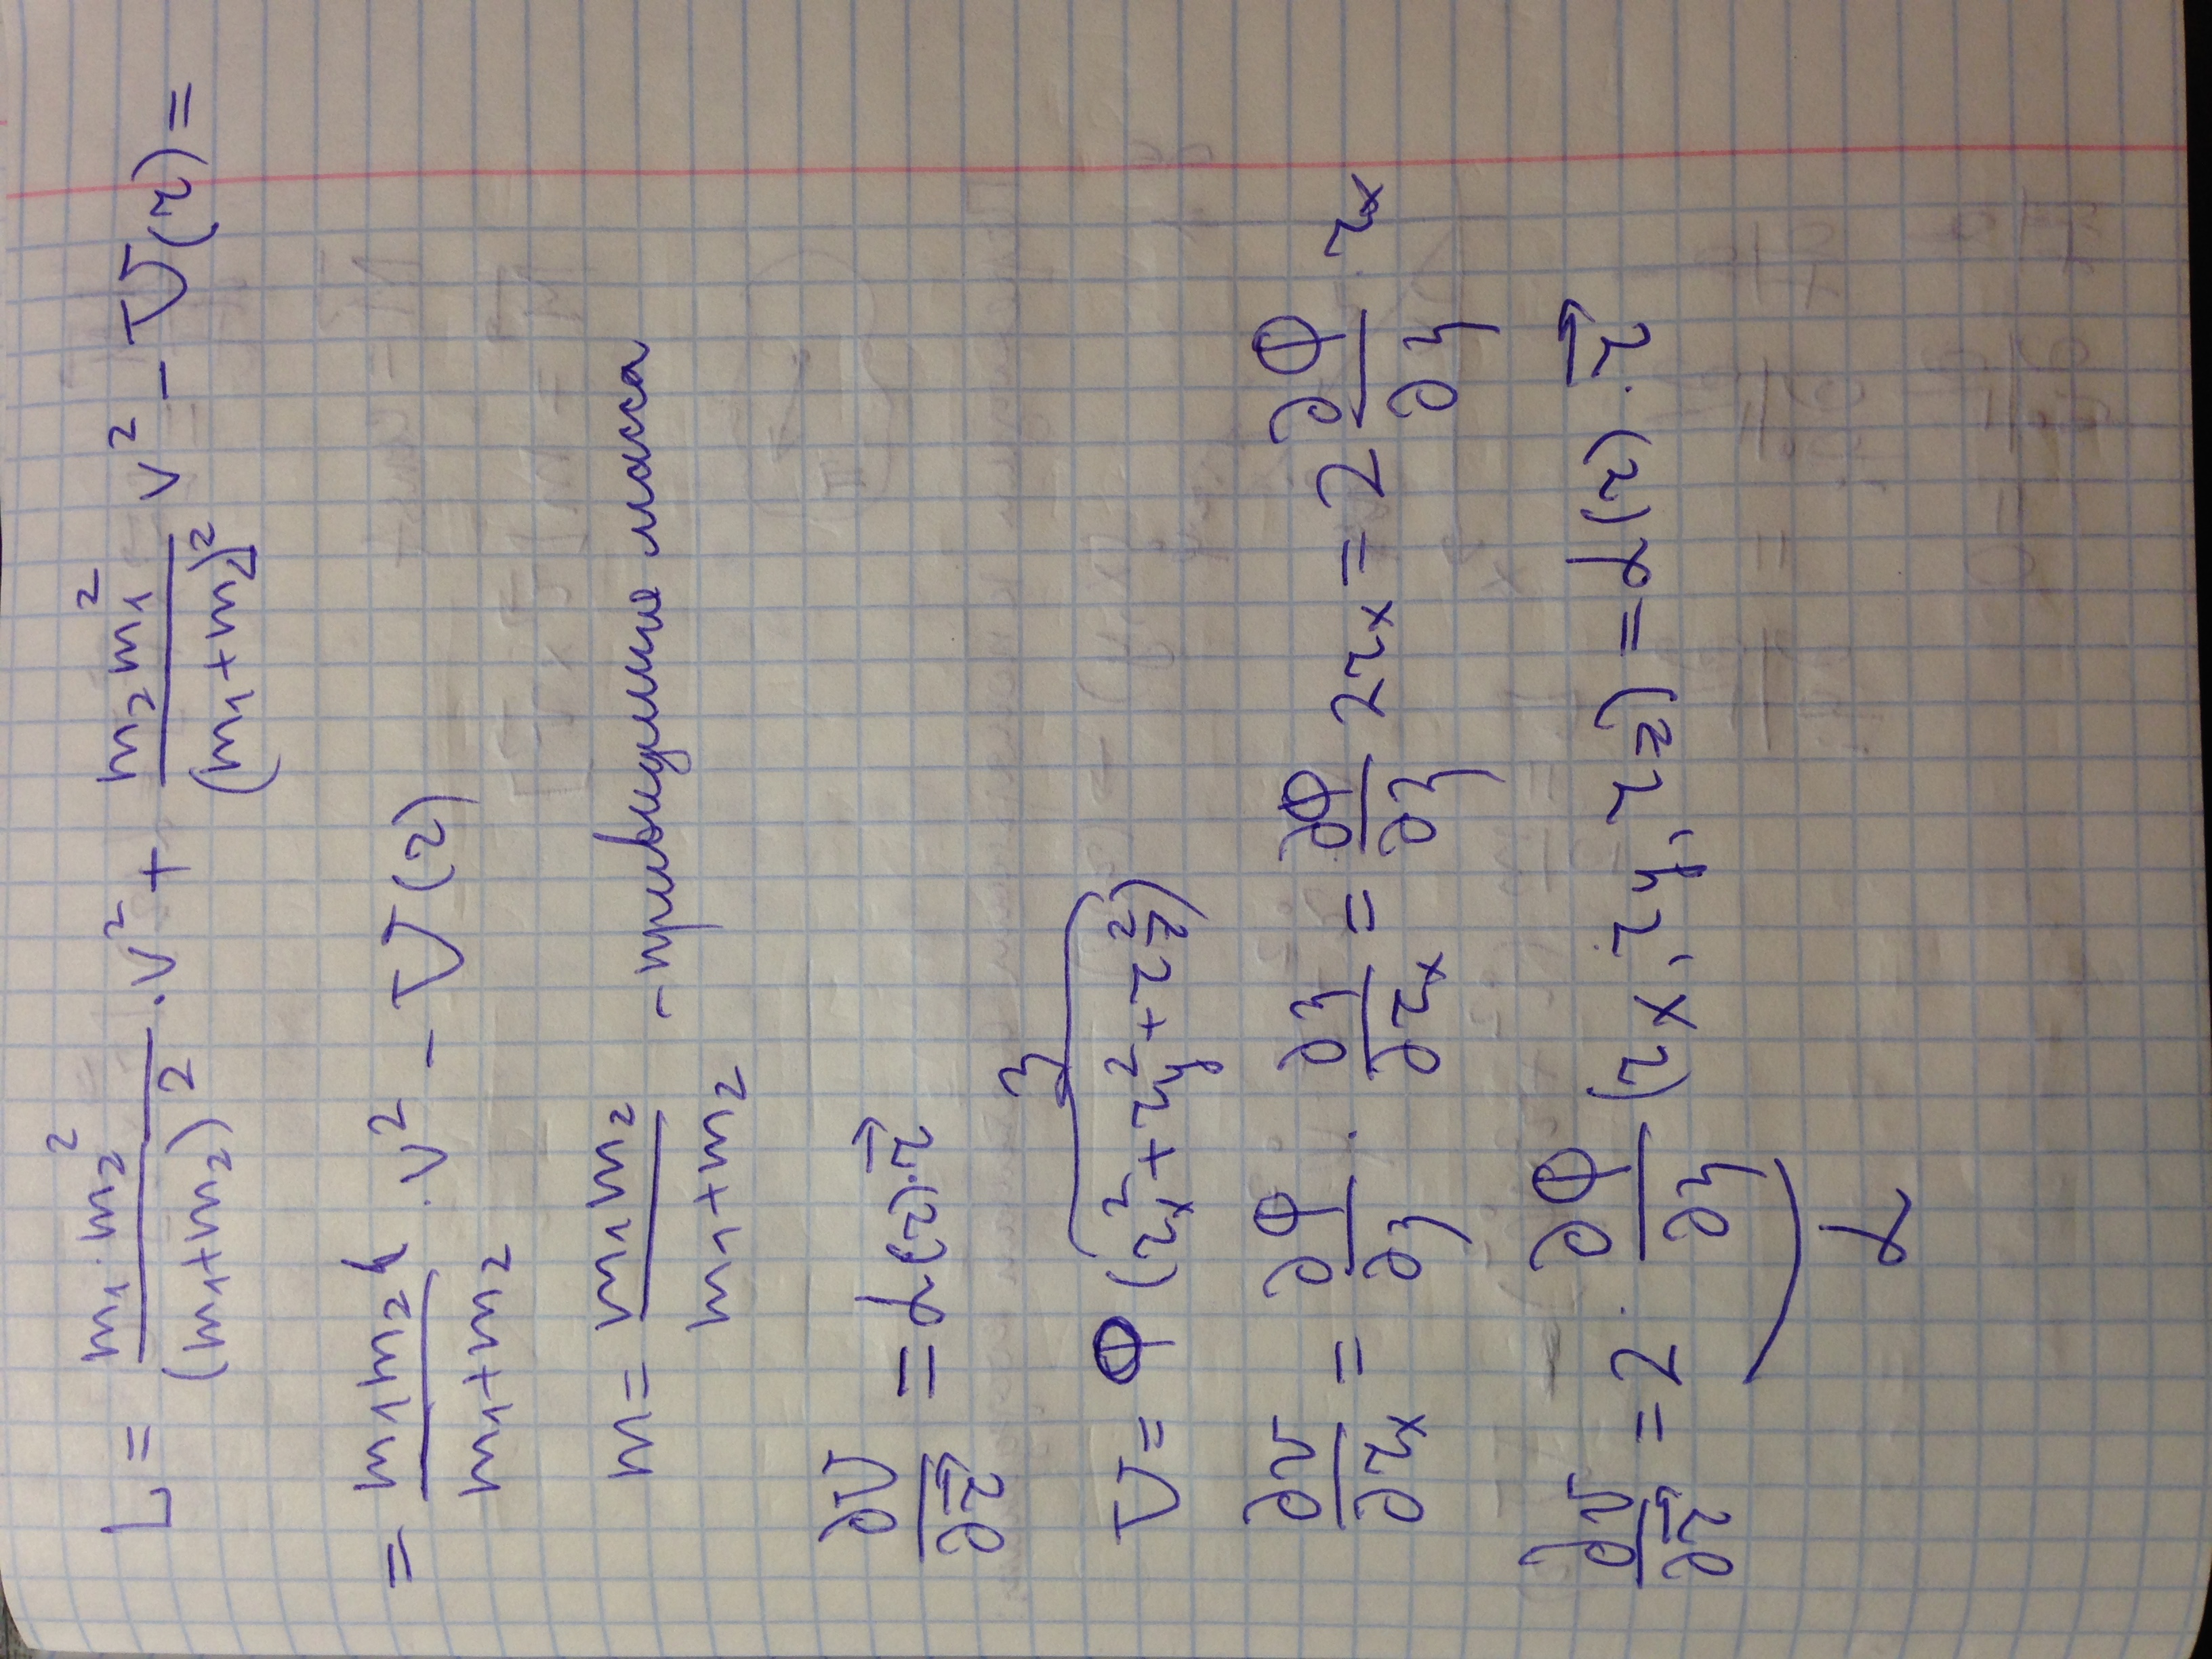 L = \frac{m_1 \cdot m_2^2}{(m_1+m_2)^2} \cdot v^2 + \frac{m_2 m_1^2}{(m_1+m_2)^2} v^2 - U(r) =
= \frac{m_1 m_2}{m_1+m_2} \cdot v^2 - U(r)
m = \frac{m_1 m_2}{m_1+m_2} - приведенные масса
\frac{\partial U}{\partial \vec{r}} = \alpha(r) \cdot \vec{r}
U = \varphi (\overbrace{r_x^2 + r_y^2 + r_z^2}^{\xi})
\frac{\partial U}{\partial r_x} = \frac{\partial \varphi}{\partial \xi} \cdot \frac{\partial \xi}{\partial r_x} = \frac{\partial \varphi}{\partial \xi} 2 r_x = 2 \frac{\partial \varphi}{\partial \xi} \cdot r_x
\frac{\partial U}{\partial \vec{r}} = \underbrace{2 \cdot \frac{\partial \varphi}{\partial \xi}}_{\alpha} (r_x, r_y, r_z) = \alpha(r) \cdot \vec{r}